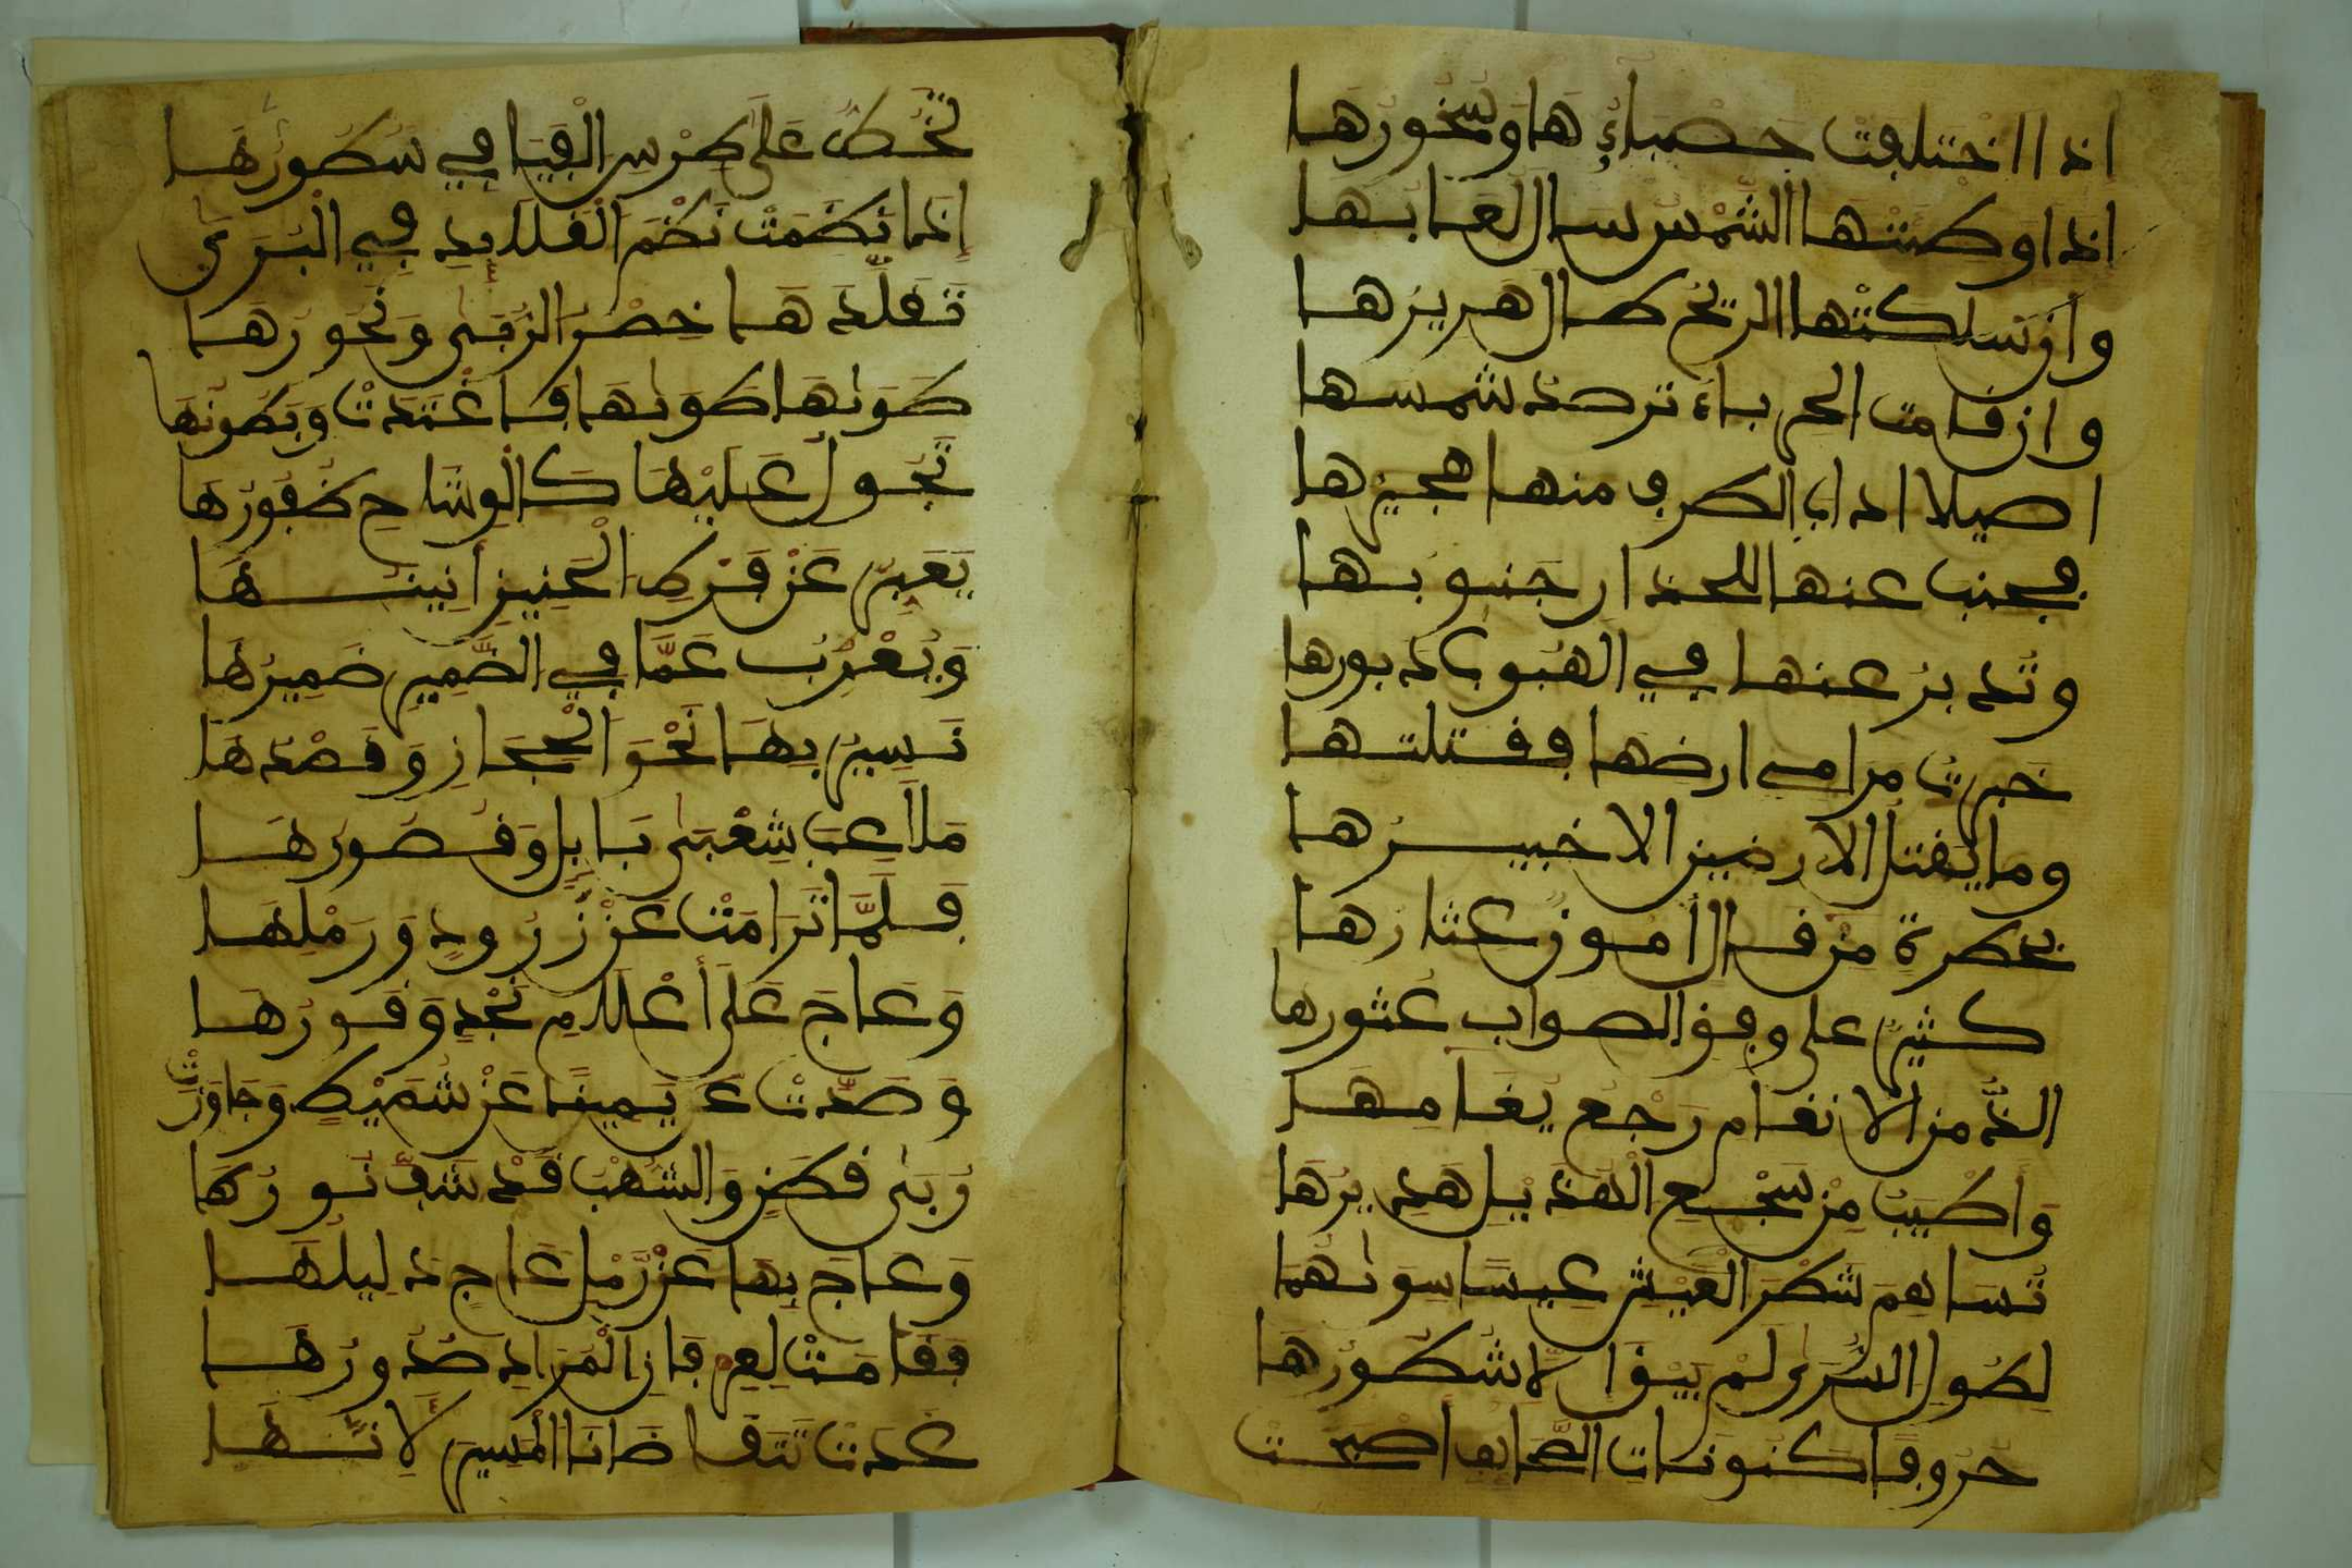 اذا اختلفت حصباؤها وسخورها
اذا اوطنتها الشمس سال لعابها
وان سلكتها الريح طال هريرها
وان قامت الحرباء ترصد شمسها
اصيلا اذاب الطرف منها هجيرها
فجنب عنها للحذار جنوبها
وتدبر عنها في الهبوب دبورها
خبرت مرامي ارضها فقتلتها
وما يقتل الارضين الا خبيرها
بخطرة مرقال أمون عثارها
كثير على وفق الصواب عثورها
الذ من الانغام رجع بغامها
وأطيب من سجع الهذيل هديرها
تساهم شطر العيش عيسا سواهما
لطول السرى لم يبق الا شطورها
حروفا كنونات الصحائف أصبحت
تخط على طرس الفيافي سطورها
إذا نظمت نظم القلائد في البرى
تقلدها خصر الربى ونحورها
طواها طواها فاغتدت وبطونها
تجول عليها كالوشاح ظفورها
يعبر عن فرط الحنين أنينها
ويعرب عما في الضمير ضميرها
نسير بها نحو الحجاز وقصدها
ملاعب شعبى بابل وقصورها
فلما ترامت عن زرود ورملها
وعاج على أعلام نجد وقورها
وصدت يمينا عن شميط وجاوزت
ربى قطن والشهب قد شف نورها
وعاج بها عن رمل عاج دليلها
فقامت لعرفان المراد صدورها
غدت تتقاضانا المسير لانها